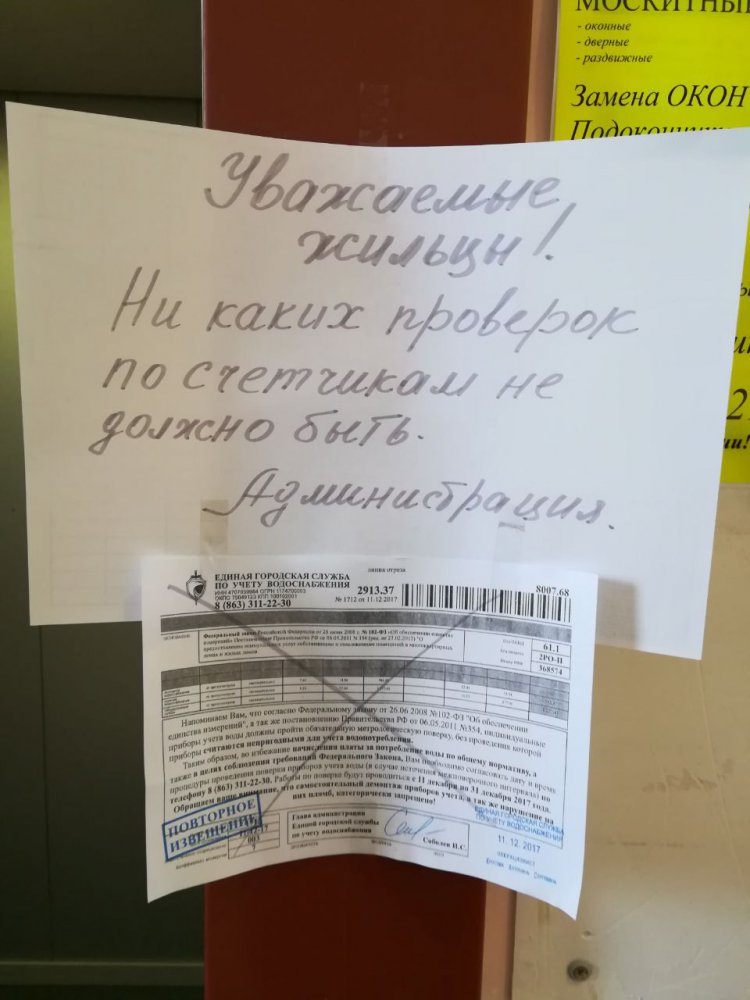 МОСКИТНЫ
- оконные
- дверные
- раздвижные
Замена ОКОН
Уважаемые
жильцы!
Ни каких проверок
по счетчикам не
должно быть.
Администрация.
линия отреза
ЕДИНАЯ ГОРОДСКАЯ СЛУЖБА
ПО УЧЕТУ ВОДОСНАБЖЕНИЯ
8 (863) 311-22-30
2913.37
№ 1712 от 11.12.2017
8007.68
61.1
2РО-П
568574
Напоминаем Вам, что согласно Федеральному закону от 26.06 2008 №102-ФЗ "Об обеспечении
единства измерений", а так же постановлению Правительства РФ от 06.05.2011 №354, индивидуальные
приборы учета воды должны пройти обязательную метрологическую поверку, без проведения которой
приборы считаются непригодными для учета водопотребления.
Таким образом, во избежание начисления платы за потребление воды по общему нормативу, а
также в целях соблюдения требований Федерального Закона, Вам необходимо согласовать дату и время
процедуры проведения поверки приборов учета воды (в случае истечения межповерочного интервала) по
телефону 8 (863) 311-22-30. Работы по поверке будут проводиться с 11 декабря по 31 декабря 2017 года.
Обращаем ваше внимание, что самостоятельный демонтаж приборов учета, а так же нарушение на
них пломб, категорически запрещено!
ПОВТОРНОЕ
ИЗВЕЩЕНИЕ
Глава администрации
Единой городской службы
по учету водоснабжения
Соболев И.С.
ЕДИНАЯ ГОРОДСКАЯ СЛУЖБА
ПО УЧЕТУ ВОДОСНАБЖЕНИЯ
11.12.2017